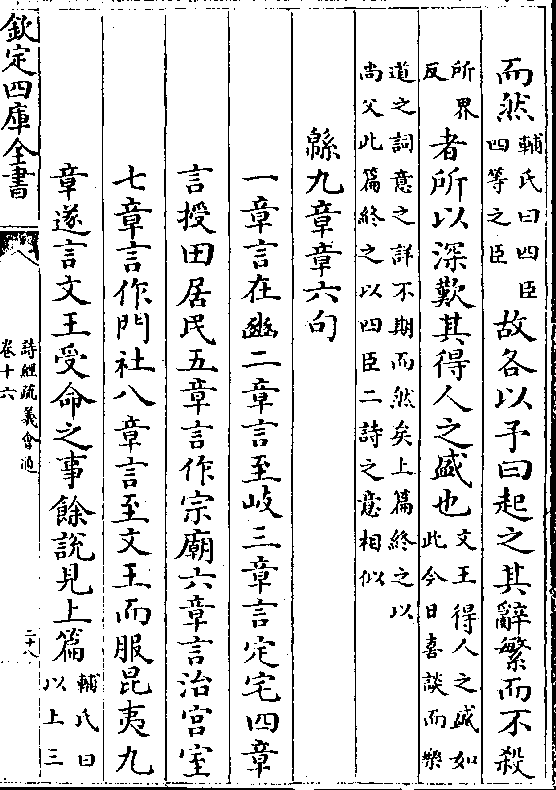 而然輔氏曰四臣四等之臣故各以予曰起之其辭繁而不殺
所界反者所以深歎其得人之盛也文王得人之盛如此今日喜談而樂
道之詞意之詳不期而然矣上篇終之以
尚父此篇終之以四臣二詩之意相似
緜九章章六句
一章言在豳二章言至岐三章言定宅四章
言授田居民五章言作宗廟六章言治宮室
七章言作門社八章言至文王而服昆夷九
章遂言文王受命之事餘說見上篇輔氏曰以上三
欽定四庫全書
詩經疏義會通
卷十六
二十八